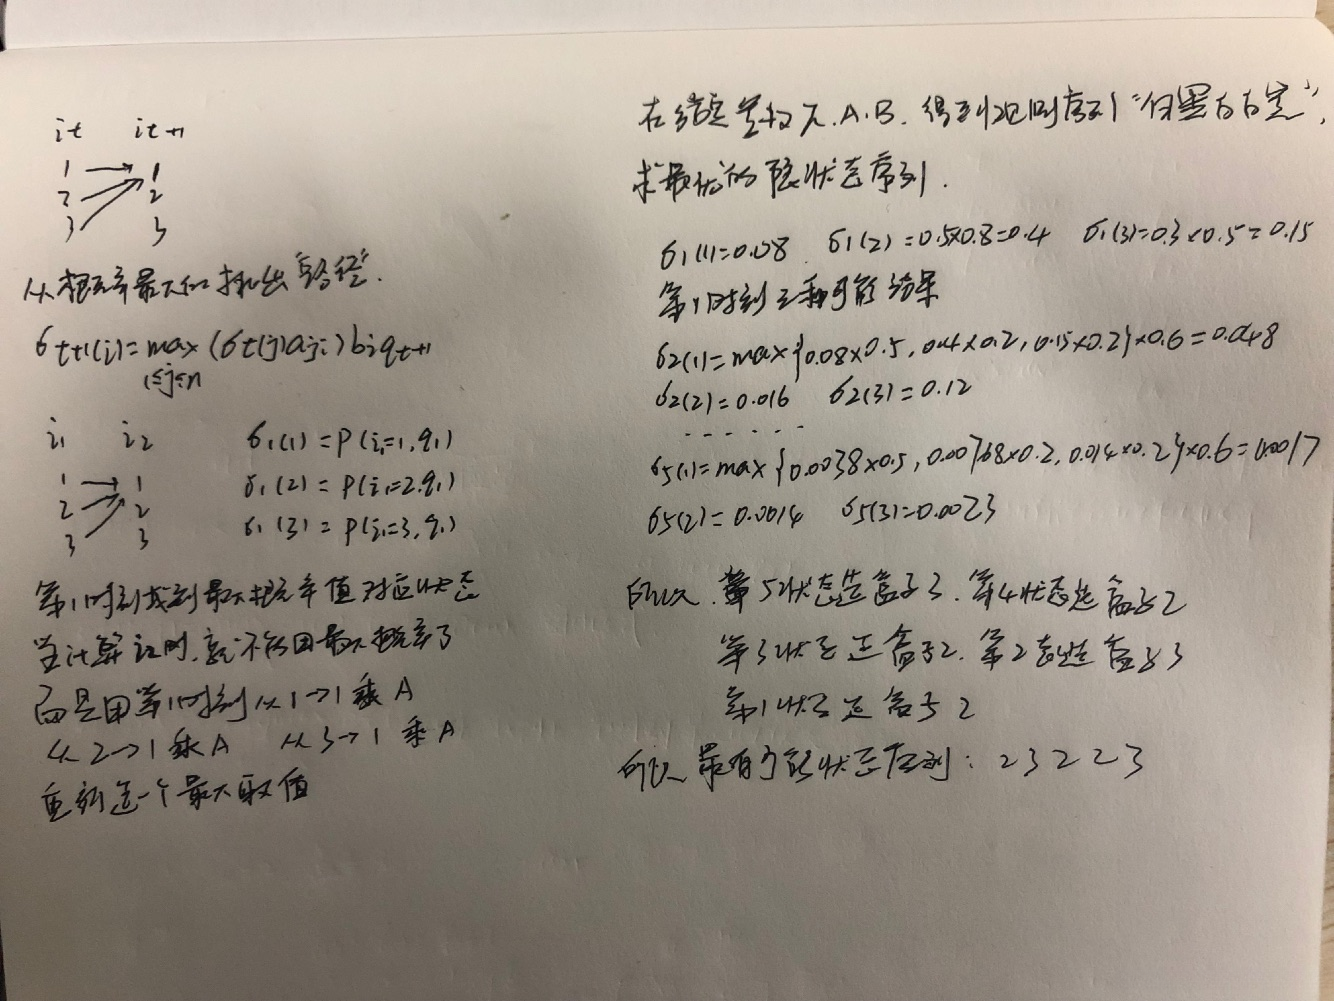 it it+1
1 1
2 2
3 3
从概率最大的挑出“路径”.
δt+1(i)=max(δt(j)aji)biqt+1
1≤j≤n
i1 i2
1 1
2 2
3 3
δ1(1)=P(i1=1,q1)
δ1(2)=P(i1=2,q1)
δ1(3)=P(i1=3,q1)
第1时刻找到最大概率值对应状态
当计算i2时,就不能用最大概率了
而是用第1时刻从1→1乘A
从2→1乘A 从3→1乘A
重新选一个最大取值
在给定参数π.A.B.得到观测序列“白黑白白黑”,
求最优的隐状态序列.
δ1(1)=0.08 δ1(2)=0.5×0.8=0.4 δ1(3)=0.3×0.5=0.15
第1时刻三种可能结果
δ2(1)=max{0.08×0.5,0.4×0.2,0.15×0.2}×0.6=0.048
δ2(2)=0.016 δ2(3)=0.12
······
δ5(1)=max{0.0038×0.5,0.00768×0.2,0.014×0.2}×0.6=0.0017
δ5(2)=0.0014 δ5(3)=0.0023
所以.第5状态选盒子3.第4状态选盒子2
第3状态选盒子2.第2态选盒子3
第1状态选盒子2
所以最有可能状态序列:23223